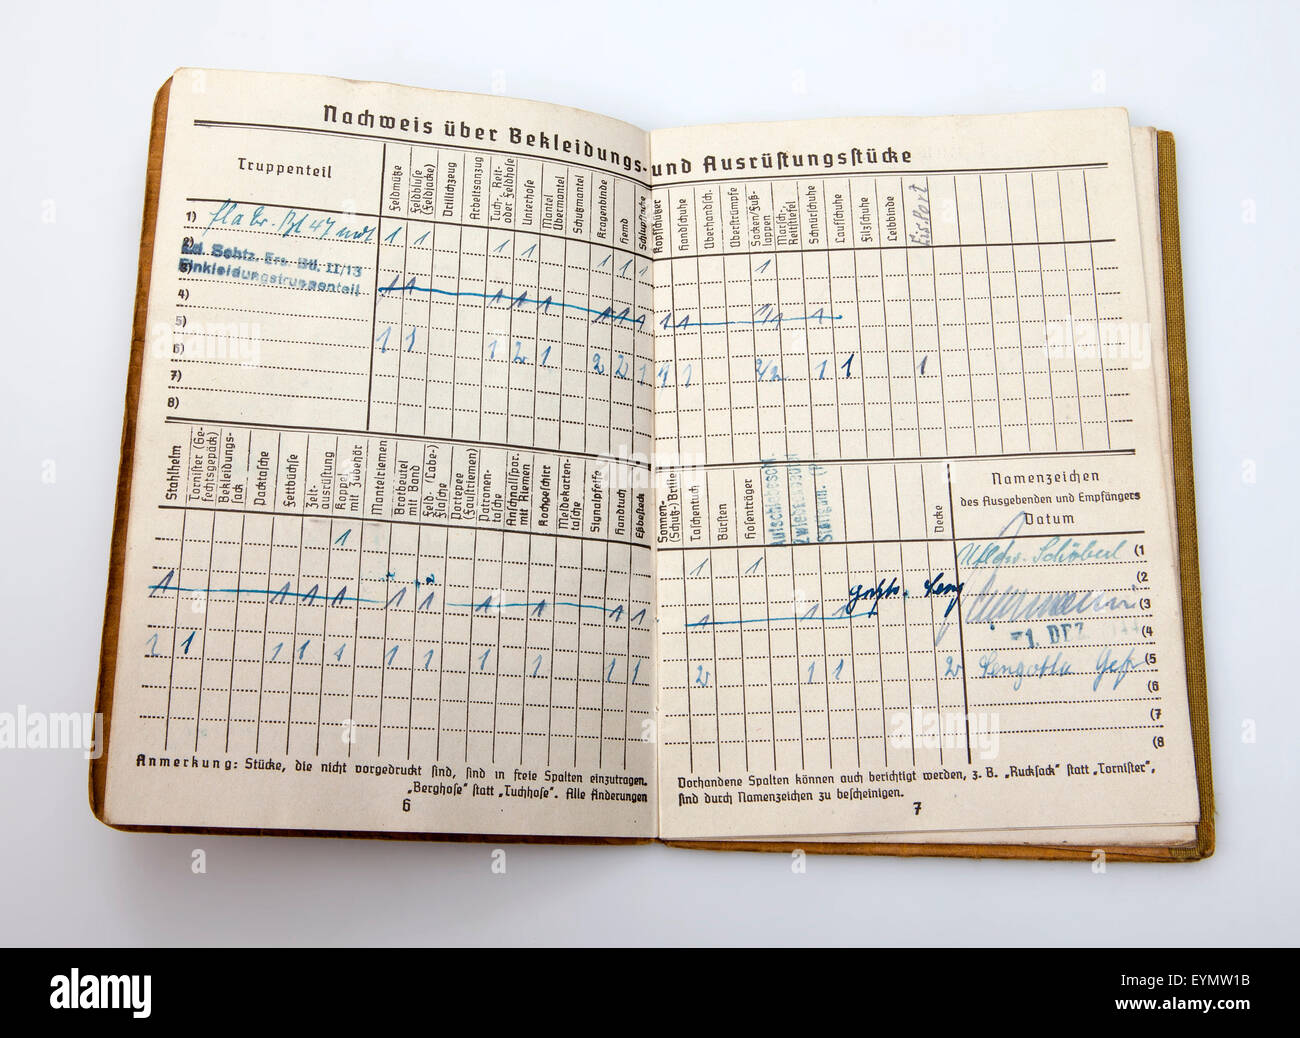 Nachweis über Bekleidungs- und Ausrüstungsstücke
Truppenteil
Feldmütze
Feldbluse (Feldjacke)
Drillichzeug
Arbeitsanzug
Tuch-, Reit- oder Feldhose
Unterhose
Mantel Übermantel
Schutzmantel
Kragenbinde
Hemd
Schlupfjacke
Kopfschützer
Handschuhe
Überhandsch.
Überstrümpfe
Socken/Fuß-lappen
Marsch-, Reitstiefel
Schnürschuhe
Laufschuhe
Filzschuhe
Leibbinde
1) 1 1 1 1 1 1 1 1
2)
Ld. Schtz. Ers. Btl. II/13
Einkleidungstruppenteil
3) 1 1 1 1 1 1 1 1 1 1 1/1 1
4)
5)
1 1 1 2 1 2 2 1 1 1 2/2 1 1 1
6)
7)
8)
Stahlhelm
Tornister (Ge-fechtsgepäck)
Bekleidungs-sack
Packtasche
Fettbüchse
Zelt-ausrüstung
Koppel mit Zubehör
Mantelriemen
Brotbeutel mit Band
Feld-(Labe-)Flasche
Portepee (Faustriemen)
Patronen-tasche
Anschnallspor. mit Riemen
Kochgeschirr
Meldekarten-tasche
Signalpfeife
Handtuch
Eßbesteck
Sonnen-(Schutz-)Brille
Taschentuch
Bürsten
Hosenträger
Decke
Namenzeichen
des Ausgebenden und Empfängers
Datum
1 1 1 (1
(2
1 1 1 1 1 1 1 1 1 1 1 1 1 (3
1. DEZ
(4
1 1 1 1 1 1 1 1 1 1 1 2 1 1 2 (5
(6
(7
(8
Anmerkung: Stücke, die nicht vorgedruckt sind, sind in freie Spalten einzutragen.
„Berghose" statt „Tuchhose". Alle Änderungen
6
Vorhandene Spalten können auch berichtigt werden, z. B. „Rucksack" statt „Tornister",
sind durch Namenzeichen zu bescheinigen.
7
alamy
alamy
Image ID: EYMW1B
www.alamy.com